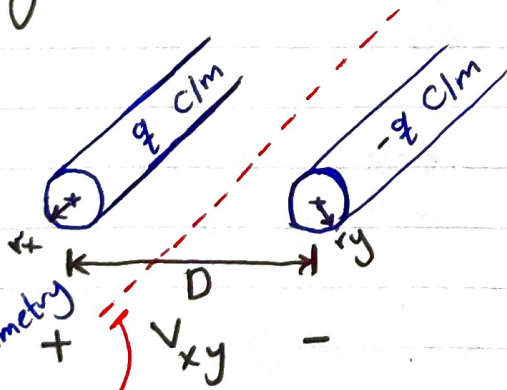 q C/m
-q C/m
rx
ry
D
metry
+ Vxy -